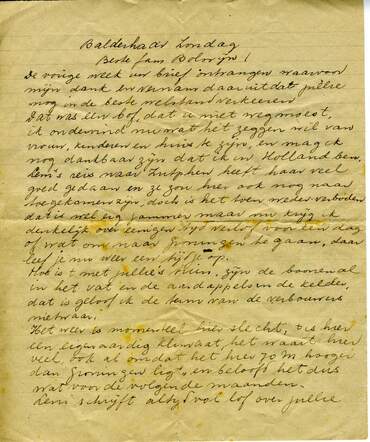 Balderhaar Zondag
Beste fam Bolwijn!
De vorige week uw brief ontvangen waarvoor
mijn dank en vernam daar uit dat jullie
nog in de beste welstand verkeeren
Dat was een bof, dat u niet weg moest,
ik ondervind nu wat het zeggen wil van
vrouw, kinderen en huis te zijn, en mag ik
nog dankbaar zijn dat ik in Holland ben,
Leni's reis naar Zutphen heeft haar veel
goed gedaan en ze zou hier ook nog naar
toegekomen zijn, doch is het toen weder verboden
dat is wel erg jammer maar nu krijg ik
denkelijk over eenigen tijd verlof voor een dag
of wat om naar Groningen te gaan, daar
leef je nu weer een tijdje op.
Hoe is 't met jullie's tuin, zijn de boonen al
in het vat en de aardappels in de kelder,
dat is geloof ik de term van de verbouwers
nietwaar.
Het weer is momenteel hier slecht, 't is hier
een eigenaardig klimaat, het waait hier
veel, ook al omdat het hier 70 m hooger
dan Groningen ligt, en belooft het dus
wat voor de volgende maanden.
Leni schrijft altijd vol lof over jullie